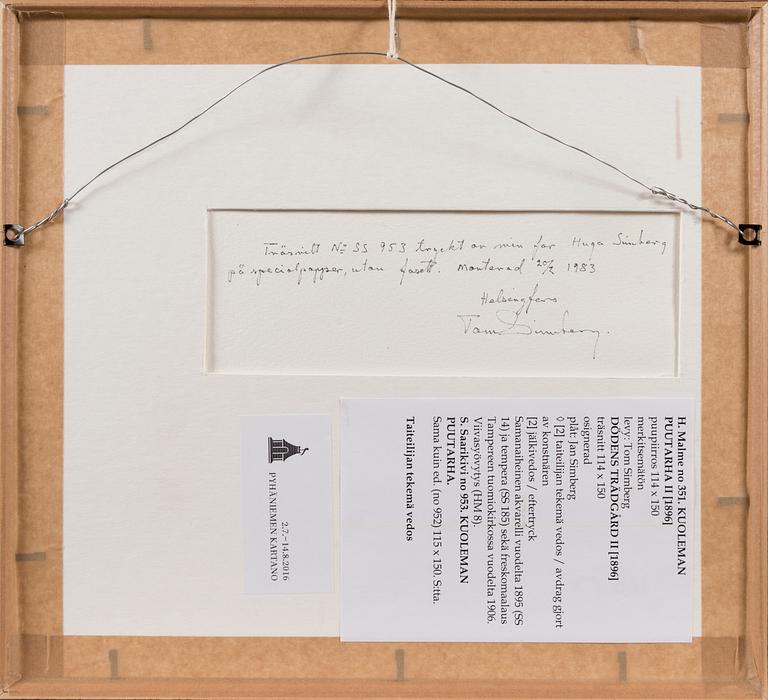 Träsnitt No SS 953 tryckt av min far Hugo Simberg
på specialpapper, utan fasett. Monterad 20/2 1983
Helsingfors
Tom Simberg.
H. Malme no 351. KUOLEMAN
PUUTARHA II [1896]
puupiirros 114 x 150
merkitsemätön
levy: Tom Simberg
DÖDENS TRÄDGÅRD II [1896]
träsnitt 114 x 150
osignerad
plåt: Jan Simberg
◊ [2] taiteilijan tekemä vedos / avdrag gjort
av konstnären
[2] jälkivedos / eftertryck
Samanaiheinen akvarelli vuodelta 1895 (SS
14) ja tempera (SS 185) sekä freskomaalaus
Tampereen tuomiokirkossa vuodelta 1906.
Viivasyövytys (HM 8).
S. Saarikivi no 953. KUOLEMAN
PUUTARHA.
Sama kuin ed. (no 952) 115 x 150. S:tta.
Taiteilijan tekemä vedos
2.7.–14.8.2016
PYHÄNIEMEN KARTANO